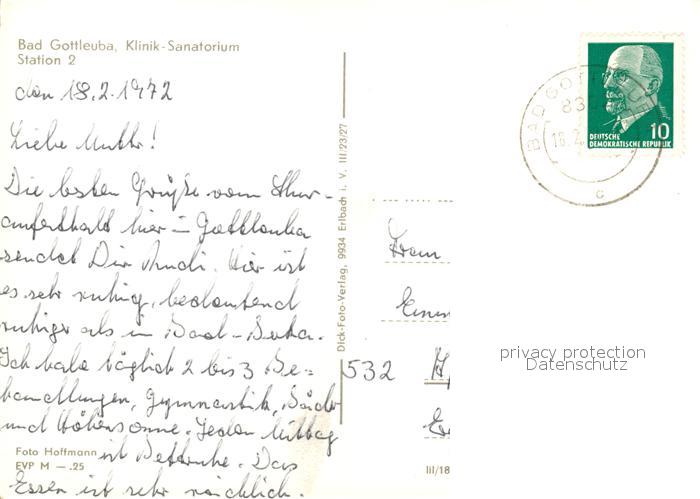 Bad Gottleuba, Klinik-Sanatorium
Station 2
den 18.2.1972
Liebe Mutti!
Die besten Grüße vom Kur-
aufenthalt hier in Gottleuba
sendet Dir Rudi. Hier ist
es sehr ruhig, bedeutend
ruhiger als in Bad-Berka.
Ich habe täglich 2 bis 3 Be-
handlungen, Gymnastik, Bäder
und Höhensonne. Jeden Mittag
ist Bettruhe. Das
Essen ist sehr reichlich.
Foto Hoffmann
EVP M —.25
Dick-Foto-Verlag, 9934 Erlbach i. V. III/23/27
BAD GOTT
83
18.2.
c
10
DEUTSCHE
DEMOKRATISCHE REPUBLIK
Frau
532
III/18
privacy protection
Datenschutz